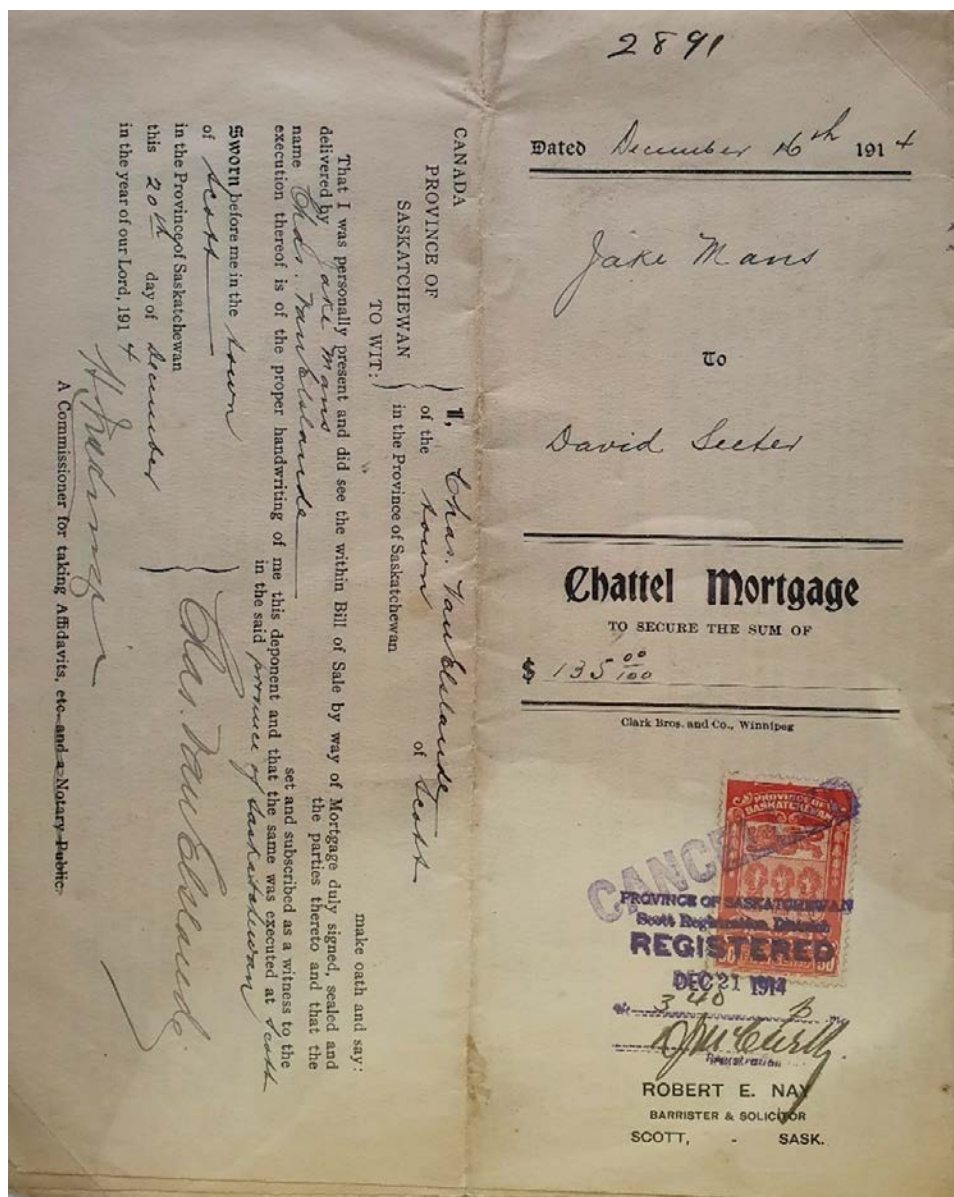 2891
Dated December 16th 1914
Jake Mans
To
David Seeter
Chattel Mortgage
TO SECURE THE SUM OF
$ 135 00/100
Clark Bros. and Co., Winnipeg
PROVINCE OF
SASKATCHEWAN
PROVINCE OF SASKATCHEWAN
Scott Registration Division
REGISTERED
DEC 21 1914
At 3 40 P. M.
ROBERT E. NAY
BARRISTER & SOLICITOR
SCOTT, - SASK.
CANADA
PROVINCE OF
SASKATCHEWAN
TO WIT:
I, Chas.
of the town of Scott
in the Province of Saskatchewan
make oath and say:
That I was personally present and did see the within Bill of Sale by way of Mortgage duly signed, sealed and
delivered by Jake Mans the parties thereto and that the
name Chas. set and subscribed as a witness to the
execution thereof is of the proper handwriting of me this deponent and that the same was executed at Scott
in the said province of Saskatchewan
Sworn before me in the town
of Scott
in the Province of Saskatchewan
this 20th day of December
in the year of our Lord, 1914
Chas.
A Commissioner for taking Affidavits, etc. and a Notary Public.